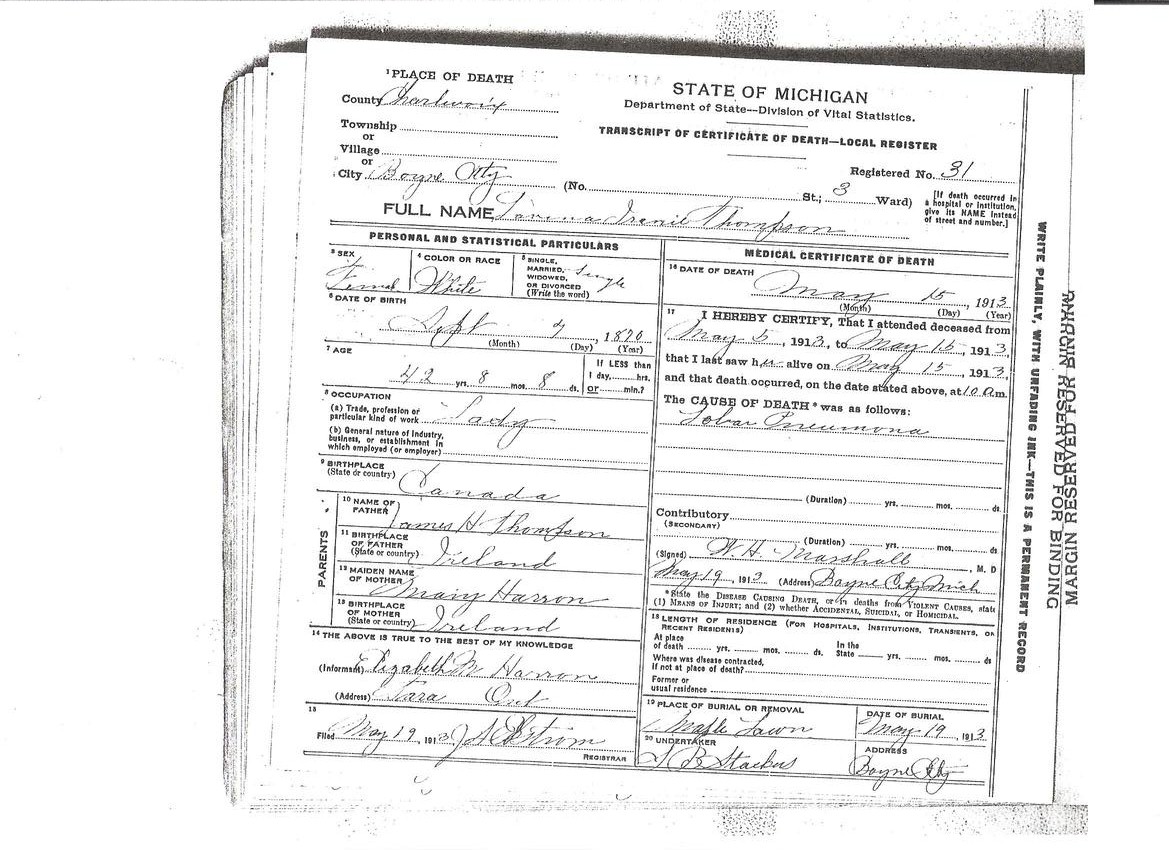 ¹PLACE OF DEATH
County Charlevoix
Township
or
Village
or
City Boyne City
STATE OF MICHIGAN
Department of State—Division of Vital Statistics.
TRANSCRIPT OF CERTIFICATE OF DEATH—LOCAL REGISTER
Registered No. 31
(No. St.; 3 Ward)
[If death occurred in
a hospital or institution,
give its NAME instead
of street and number.]
FULL NAME Lavina Irenie Thompson
PERSONAL AND STATISTICAL PARTICULARS
³ SEX
Femal
⁴ COLOR OR RACE
White
⁵ SINGLE,
MARRIED,
WIDOWED,
OR DIVORCED
(Write the word)
Single
⁶ DATE OF BIRTH
Sept 7, 1870
(Month) (Day) (Year)
⁷ AGE
42 yrs. 8 mos. 8 ds.
If LESS than
1 day, hrs.
or min.?
⁸ OCCUPATION
(a) Trade, profession or
particular kind of work Lady
(b) General nature of industry,
business, or establishment in
which employed (or employer)
⁹ BIRTHPLACE
(State or country)
Canada
PARENTS
¹⁰ NAME OF
FATHER
James H Thompson
¹¹ BIRTHPLACE
OF FATHER
(State or country) Ireland
¹² MAIDEN NAME
OF MOTHER
Mary Harron
¹³ BIRTHPLACE
OF MOTHER
(State or country) Ireland
¹⁴ THE ABOVE IS TRUE TO THE BEST OF MY KNOWLEDGE
(Informant) Elizabeth M Harron
(Address) Tara Ont
¹⁵
Filed May 19, 1913
REGISTRAR
MEDICAL CERTIFICATE OF DEATH
¹⁶ DATE OF DEATH
May 15, 1913
(Month) (Day) (Year)
¹⁷ I HEREBY CERTIFY, That I attended deceased from
May 5, 1913, to May 15, 1913,
that I last saw her alive on May 15, 1913,
and that death occurred, on the date stated above, at 10 a m.
The CAUSE OF DEATH* was as follows:
Lobar Pneumona
(Duration) yrs. mos. ds
Contributory
(SECONDARY)
(Duration) yrs. mos. ds
(Signed) W. H. Marshall, M. D
May 19, 1913 (Address) Boyne City Mich
*State the DISEASE CAUSING DEATH, or in deaths from VIOLENT CAUSES, state
(1) MEANS OF INJURY; and (2) whether ACCIDENTAL, SUICIDAL, or HOMICIDAL.
¹⁸ LENGTH OF RESIDENCE (FOR HOSPITALS, INSTITUTIONS, TRANSIENTS, OR
RECENT RESIDENTS)
At place
of death yrs. mos. ds.
In the
State yrs. mos. ds
Where was disease contracted,
if not at place of death?
Former or
usual residence
¹⁹ PLACE OF BURIAL OR REMOVAL
Maple Lawn
DATE OF BURIAL
May 19, 1913
²⁰ UNDERTAKER
S B Stackus
ADDRESS
Boyne City
WRITE PLAINLY, WITH UNFADING INK—THIS IS A PERMANENT RECORD
MARGIN RESERVED FOR BINDING
MARGIN RESERVED FOR BINDING